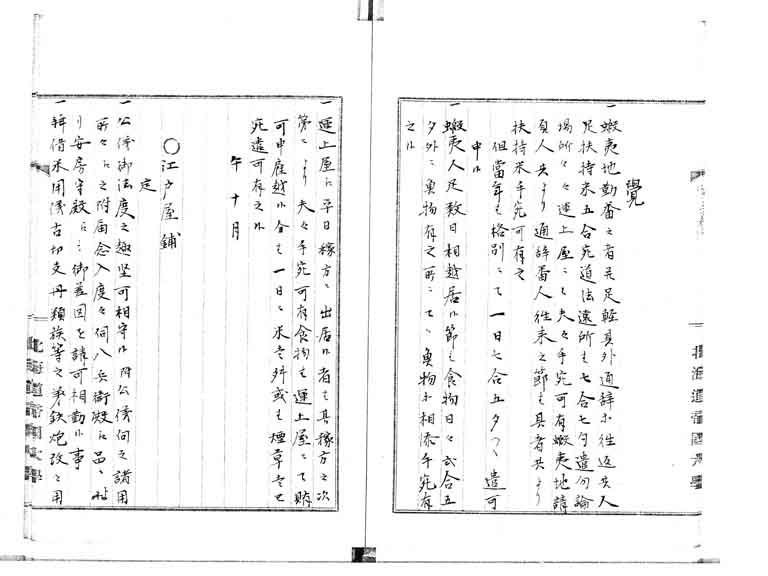 覺
蝦夷地勤番之者并足軽其外通辞等往返夫人
足扶持米五合宛道法遠所も七合七勺遣勿論
場所々々運上屋ニて夫々手宛可有蝦夷地請
負人共より通辞番人往来之節も具者共より
扶持米手宛可有之
但當年も格別ニて一日七合五夕つゝ遣可
申候
一蝦夷人足数日相越居候節も食物日々弐合五
夕外ニ魚物有之所ニてハ魚物等相添手宛有
之候
一運上屋に平日稼方ニ出居候者も其稼方之次
第ニより夫々手宛可有食物も運上屋ニて賄
可申雇越候分も一日ニ米壱升或も煙草壱ツ
宛遣可有之候
午十月
〇江戸屋鋪
定
一公儀御法度之趣堅可相守候附公儀向之諸用
所々に之附届念入度々伺八兵衛殿に品ニ
り安房守殿にも御差図を請可相勤候事
一拝借米用傳古切支丹類族等之事鉄炮改之用
北海道帝國大學
北海道帝國大學